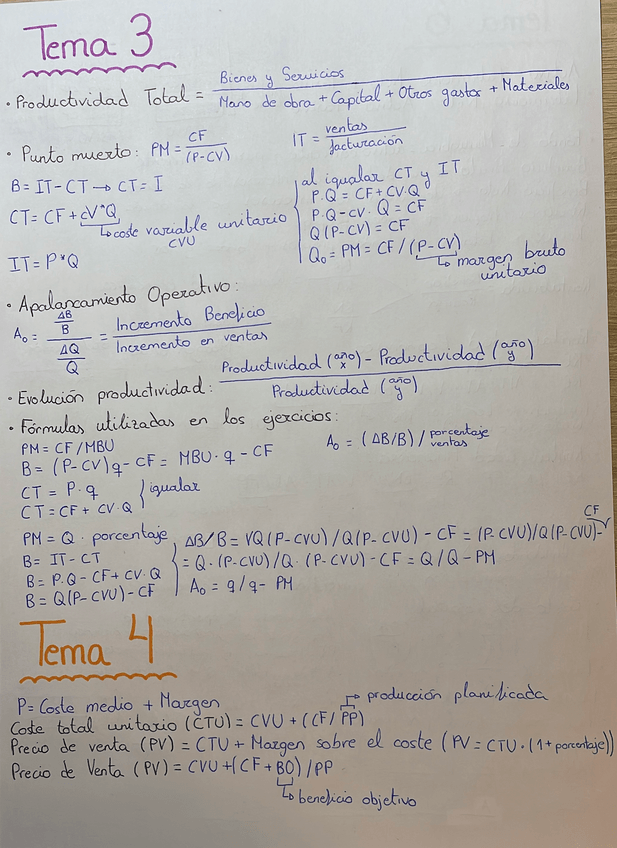 Tema 3
• Productividad Total = Bienes y Servicios / Mano de obra + Capital + Otros gastos + Materiales
• Punto muerto: PM = CF / (P-CV)
IT = ventas / facturación
B = IT - CT → CT = I
CT = CF + CV*Q
↳ coste variable unitario
CVU
IT = P*Q
al igualar CT y IT
P·Q = CF + CV·Q
P·Q - CV·Q = CF
Q (P-CV) = CF
Q₀ = PM = CF / (P-CV)
↳ margen bruto
unitario
• Apalancamiento Operativo:
A₀ = (ΔB / B) / (ΔQ / Q) = Incremento Beneficio / Incremento en ventas
• Evolución productividad: Productividad (año x) - Productividad (año y) / Productividad (año y)
• Fórmulas utilizadas en los ejercicios:
PM = CF / MBU
B = (P-CV)q - CF = MBU·q - CF
CT = P·q
CT = CF + CV·Q
igualar
A₀ = (ΔB/B) / porcentaje ventas
PM = Q · porcentaje
B = IT - CT
B = P·Q - CF + CV·Q
B = Q(P-CVU) - CF
ΔB/B = VQ(P-CVU) / Q(P-CVU) - CF = (P-CVU)/Q(P-CVU)- CF
= Q·(P-CVU)/Q·(P-CVU) - CF = Q/Q - PM
A₀ = q/q - PM
Tema 4
P = Coste medio + Margen
↱ producción planificada
Coste total unitario (CTU) = CVU + (CF/PP)
Precio de venta (PV) = CTU + Margen sobre el coste (PV = CTU·(1+porcentaje))
Precio de Venta (PV) = CVU + (CF + BO) / PP
↳ beneficio objetivo